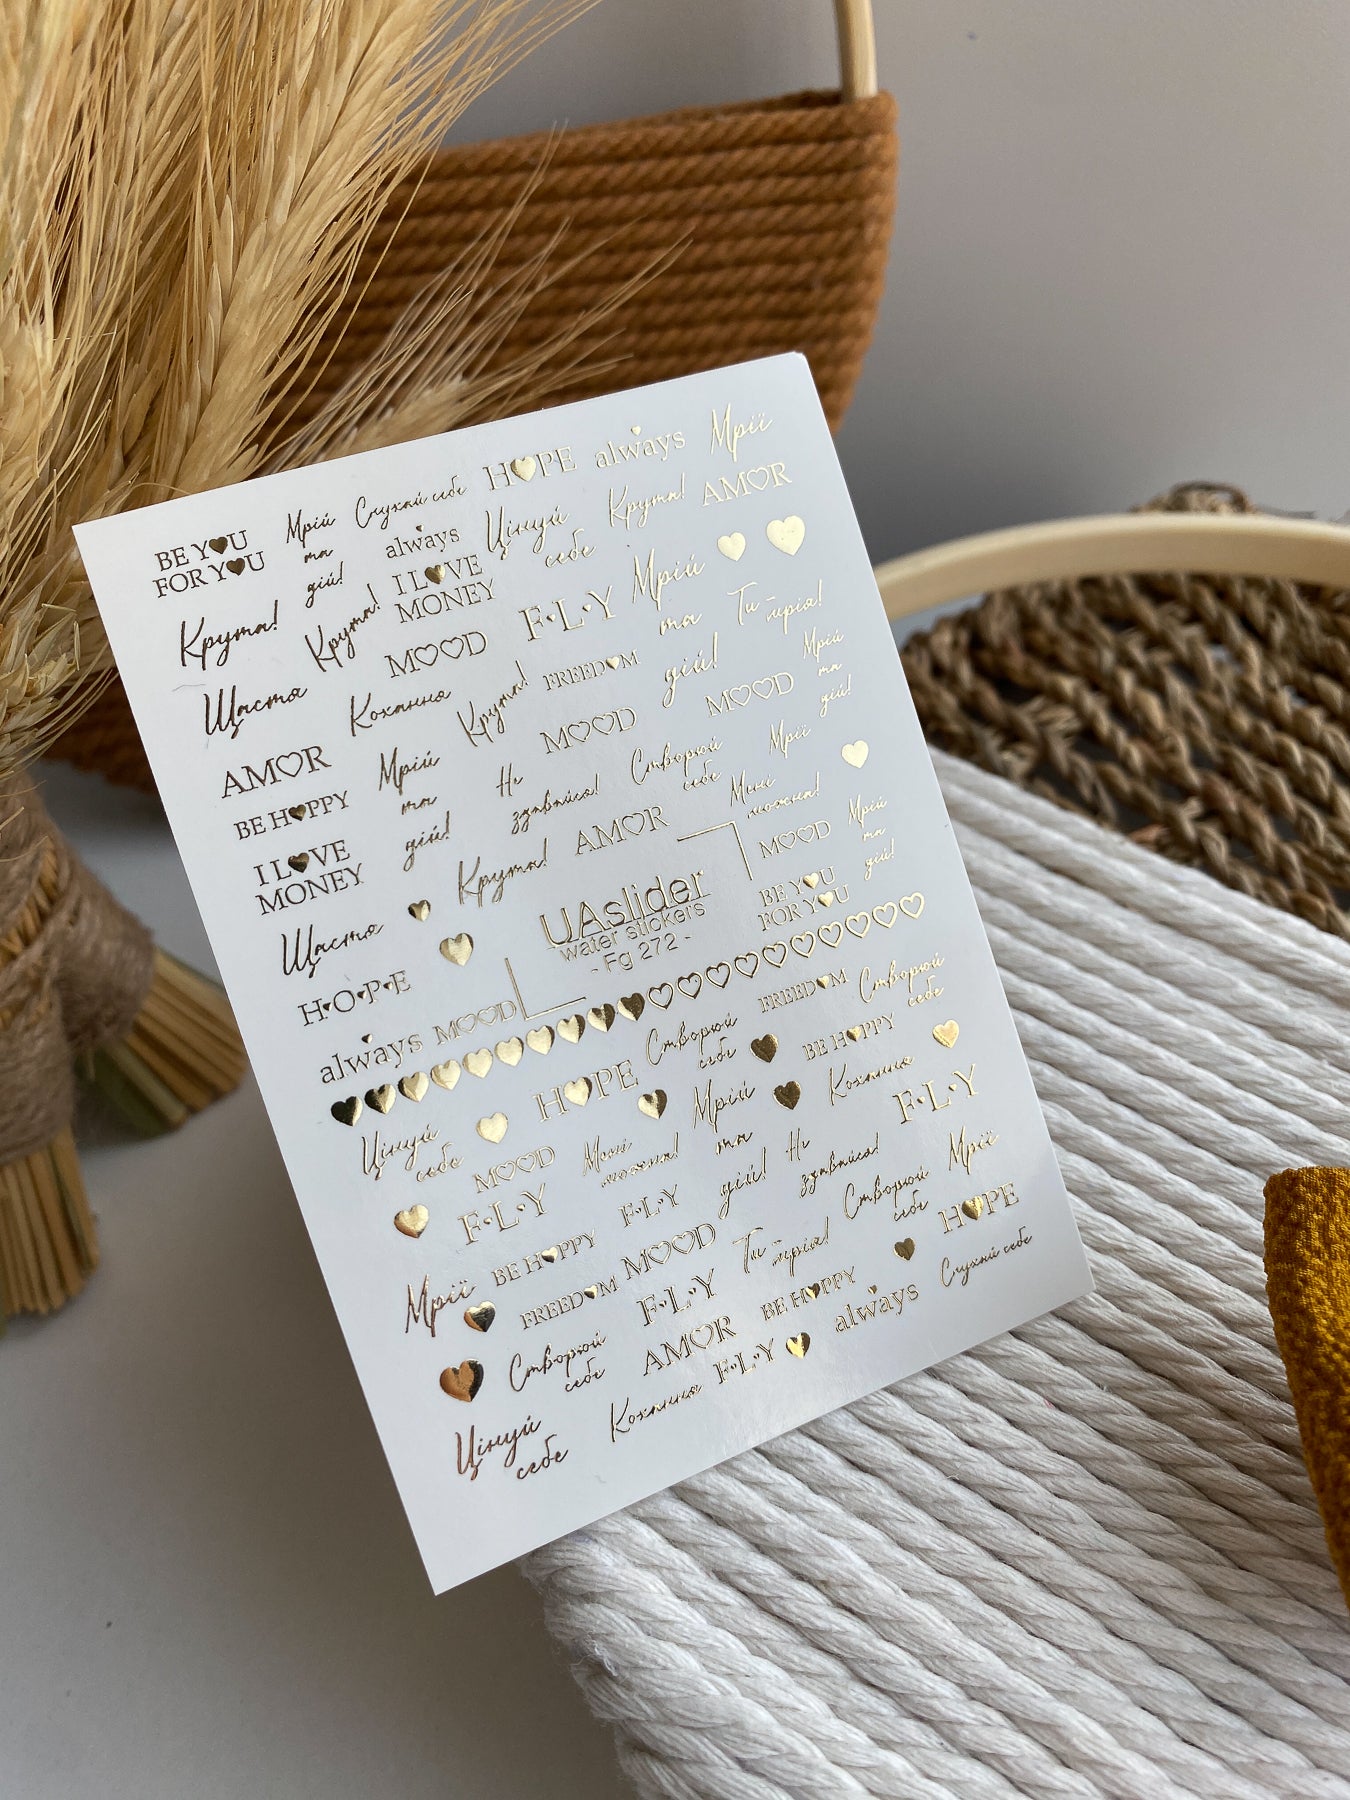 HOPE always Мрії
BE YOU Мрій Слухай себе
FOR YOU та always Цінуй Крута! AMOR
дій! I LOVE себе
Крута! Крута! MONEY F·L·Y Мрій
MOOD та Ти -мрія!
Щастя Кохання Крута! FREEDOM дій! Мрій
MOOD MOOD та
AMOR Мрій Не Створюй Мрії дій!
BE HAPPY та здавайся! себе Мені
I LOVE дій! AMOR можна! Мрій
MONEY Крута! MOOD та
Щастя UAslider BE YOU дій!
water stickers FOR YOU
- Fg 272 -
H·O·P·E
always MOOD FREEDOM Створюй
HOPE Створюй себе
Цінуй себе BE HAPPY
себе MOOD Мені Мрій Кохання
F·L·Y можна! та F·L·Y
дій! Не
Мрії BE HAPPY F·L·Y здавайся! Мрії
FREEDOM MOOD Ти -мрія! Створюй
себе HOPE
Створюй F·L·Y BE HAPPY Слухай себе
себе AMOR always
F·L·Y
Цінуй Кохання
себе